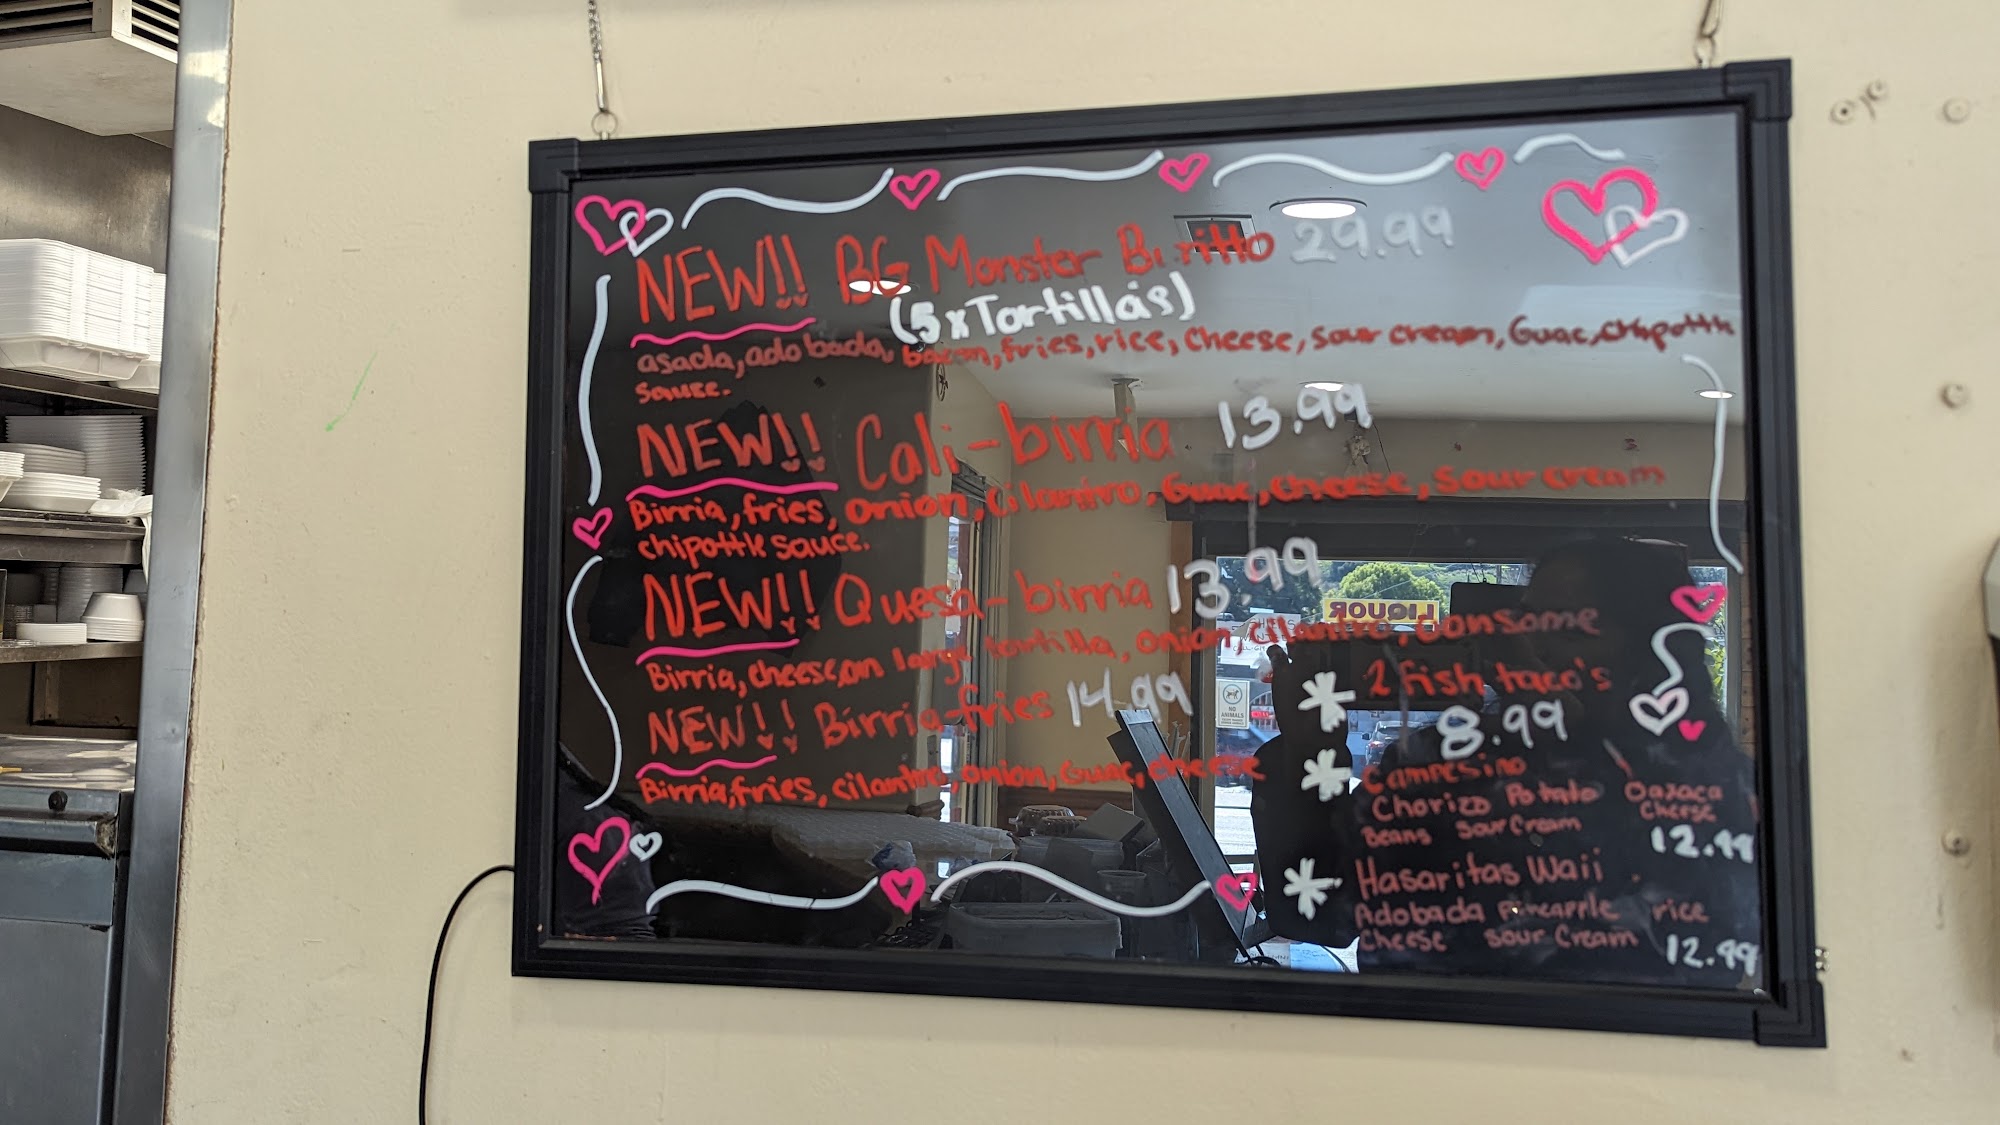 NEW!! BG Monster Biritto 29.99
(5xTortillas)
asada, adobada, bacon, fries, rice, cheese, sour cream, Guac, chipottle
sauce.
NEW!! Cali-birria 13.99
Birria, fries, onion, cilantro, Guac, cheese, sour cream
chipottle sauce.
NEW!! Quesa-birria 13.99
Birria, cheese, on large tortilla, onion, cilantro, consome
NEW!! Birria-fries 14.99
Birria, fries, cilantro, onion, Guac, cheese
* 2 fish taco's
8.99
* Campesino
Chorizo Potato Oaxaca
Beans Sour Cream Cheese
12.99
* Hasaritas Waii
Adobada pineapple rice
cheese sour cream 12.99
LIQUOR
NO
ANIMALS